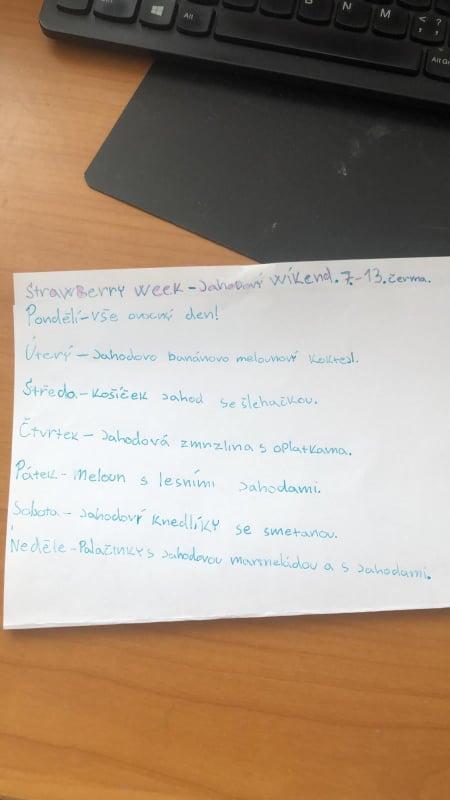 Alt
B
N
M
; ,
? .
Alt Gr
Strawberry week - Jahodový wíkend. 7.-13. černa.
Pondělí - vše ovocný den!
Úterý - Jahodovo banánovo melounový koktejl.
Středa - Košíček jahod se šlehačkou.
Čtvrtek - Jahodová zmrzlina s oplatkama.
Pátek - Meloun s lesními jahodami.
Sobota - Jahodový knedlíky se smetanou.
Neděle - Palačinky s jahodovou marmeládou a s jahodami.